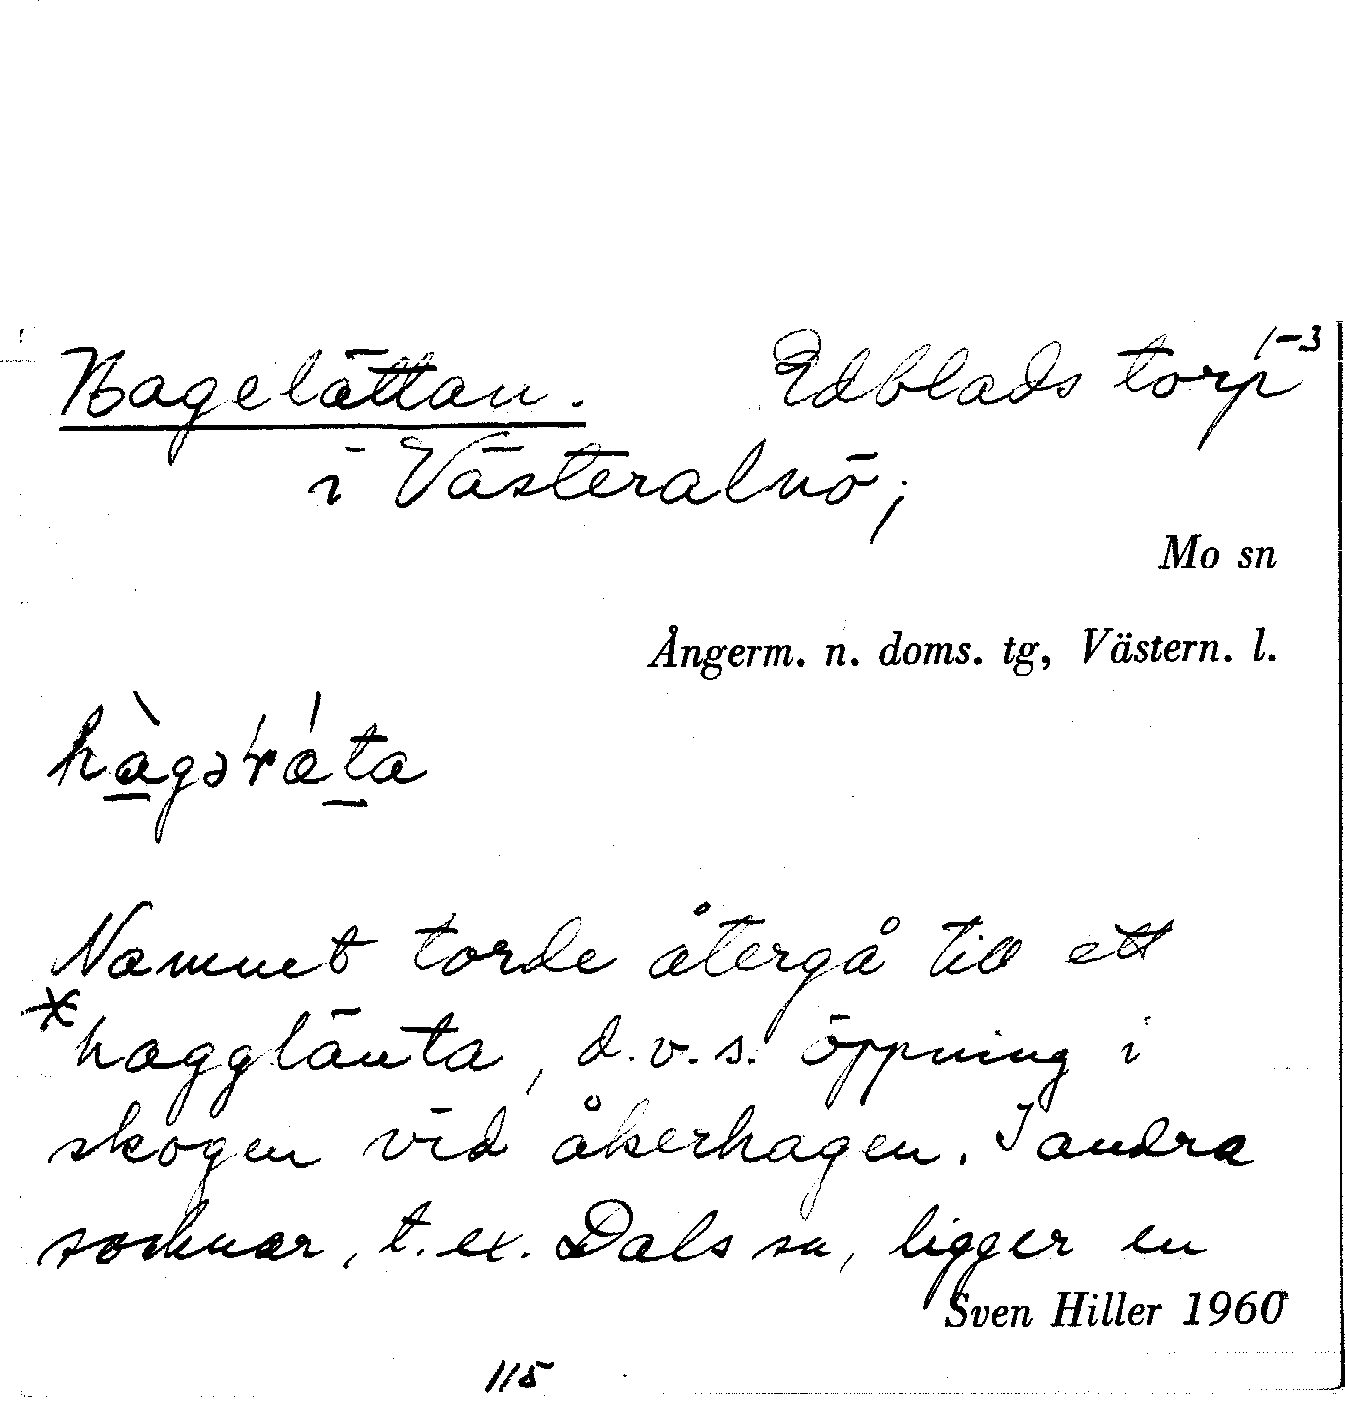 Hagelättan. Edblads torp 1-3
i Västeralnö,
Mo sn
Ångerm. n. doms. tg, Västern. l.
Namnet torde återgå till ett
*hagglänta, d.v.s. öppning i
skogen vid åkerhagen. I andra
socknar, t.ex. Dals sn, ligger en
Sven Hiller 1960
115